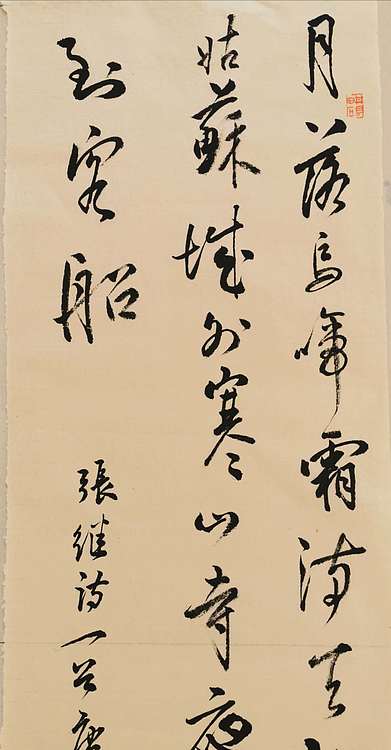 月落烏啼霜滿天
姑蘇城外寒山寺夜
到客船
張继诗一首